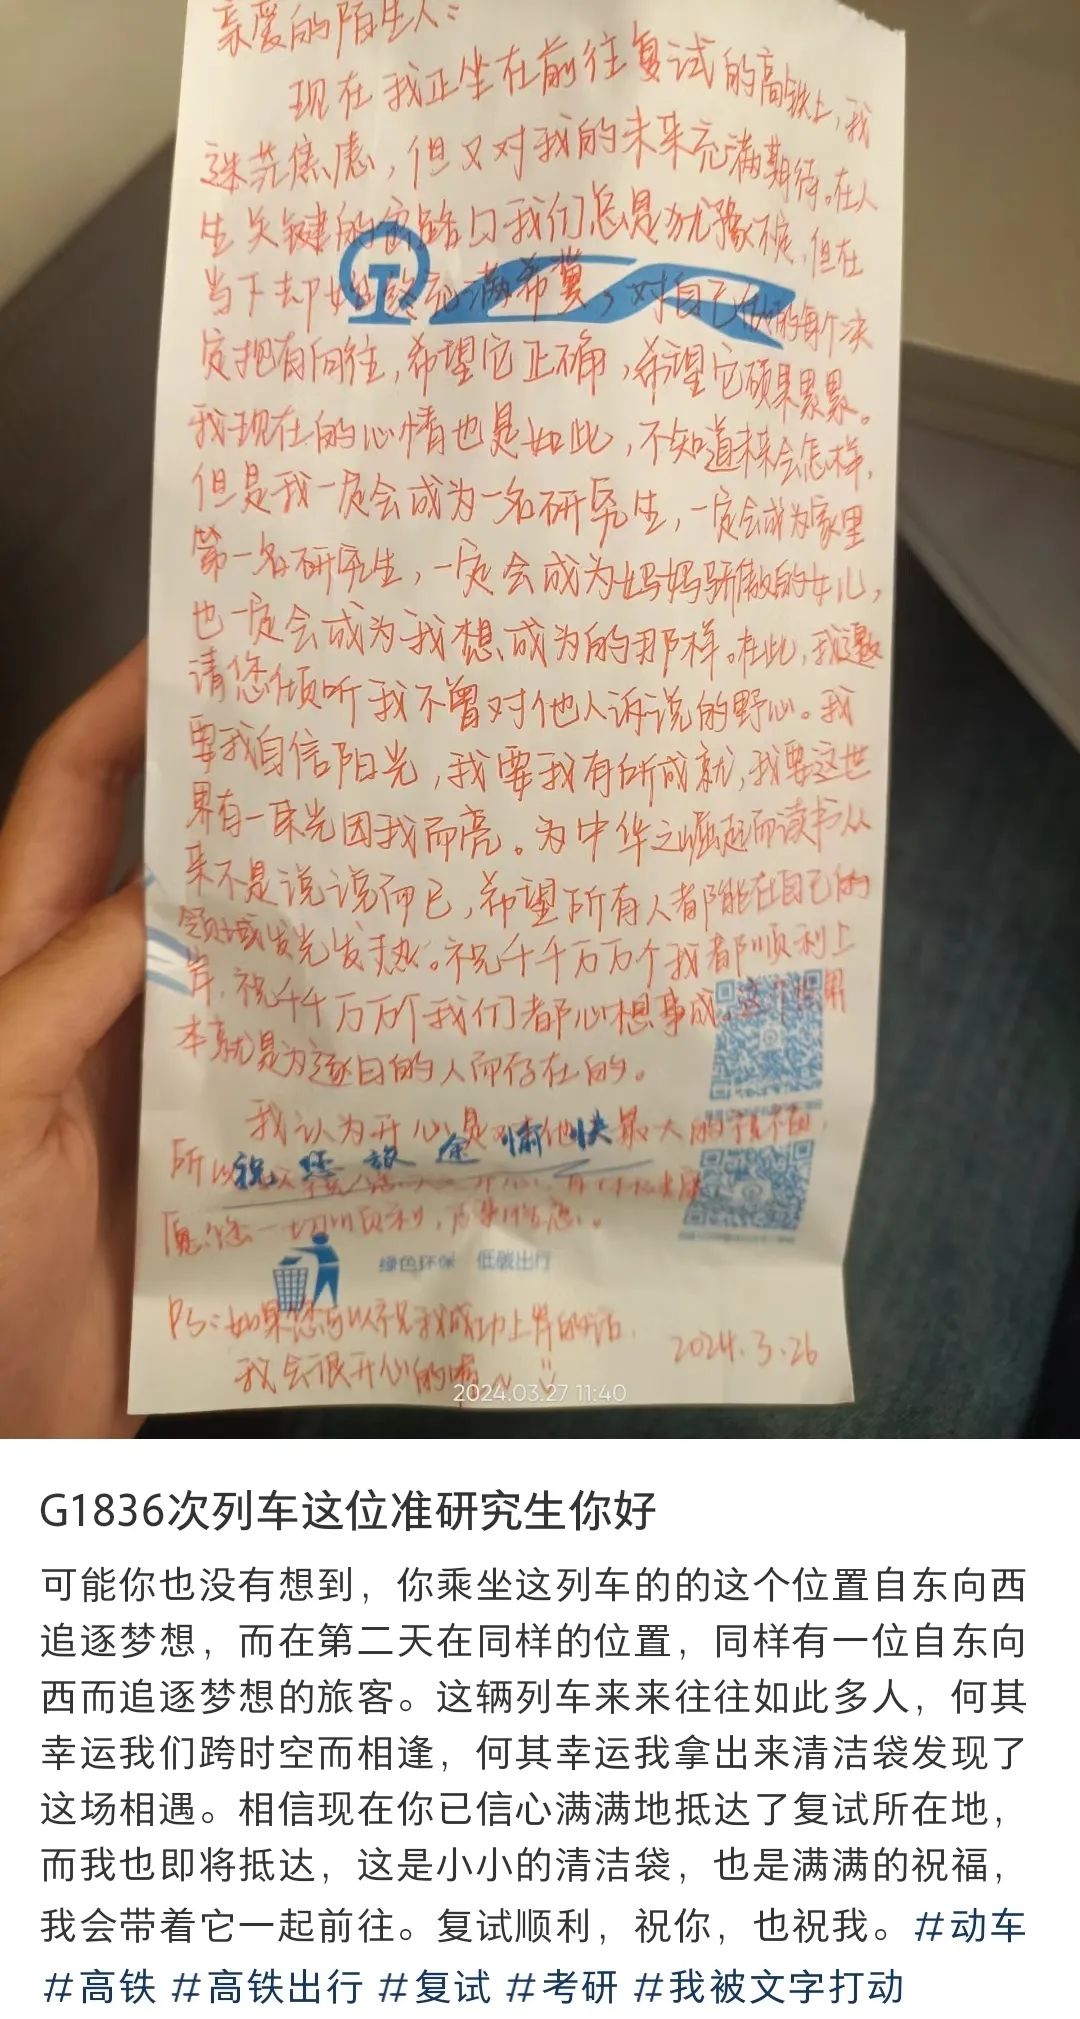 亲爱的陌生人：
现在我正坐在前往复试的高铁上，我
迷茫焦虑，但又对我的未来充满期待。在人
生关键的岔路口我们总是犹豫不定，但在
当下却始终充满希冀，对自己做的每个决
定抱有向往，希望它正确，希望它硕果累累。
我现在的心情也是如此，不知道未来会怎样，
但是我一定会成为一名研究生，一定会成为家里
第一名研究生，一定会成为妈妈骄傲的女儿，
也一定会成为我想成为的那样。在此，我邀
请您倾听我不曾对他人诉说的野心。我
要我自信阳光，我要我有所成就，我要这世
界有一束光因我而亮。为中华之崛起而读书从
来不是说说而已，希望所有人都能在自己的
领域发光发热。祝千千万万个我都顺利上
岸，祝千千万万个我们都心想事成。这个世界
本就是为逐日的人而存在的。
我认为开心是对最大的祝福，
所以
祝您旅途愉快
愿您一切顺利，
绿色环保 低碳出行
PS：如果您可以祝我成功上岸的话，
我会很开心的喔~
2024.3.26
2024.03.27 11:40
G1836次列车这位准研究生你好
可能你也没有想到，你乘坐这列车的的这个位置自东向西
追逐梦想，而在第二天在同样的位置，同样有一位自东向
西而追逐梦想的旅客。这辆列车来来往往如此多人，何其
幸运我们跨时空而相逢，何其幸运我拿出来清洁袋发现了
这场相遇。相信现在你已信心满满地抵达了复试所在地，
而我也即将抵达，这是小小的清洁袋，也是满满的祝福，
我会带着它一起前往。复试顺利，祝你，也祝我。#动车
#高铁 #高铁出行 #复试 #考研 #我被文字打动